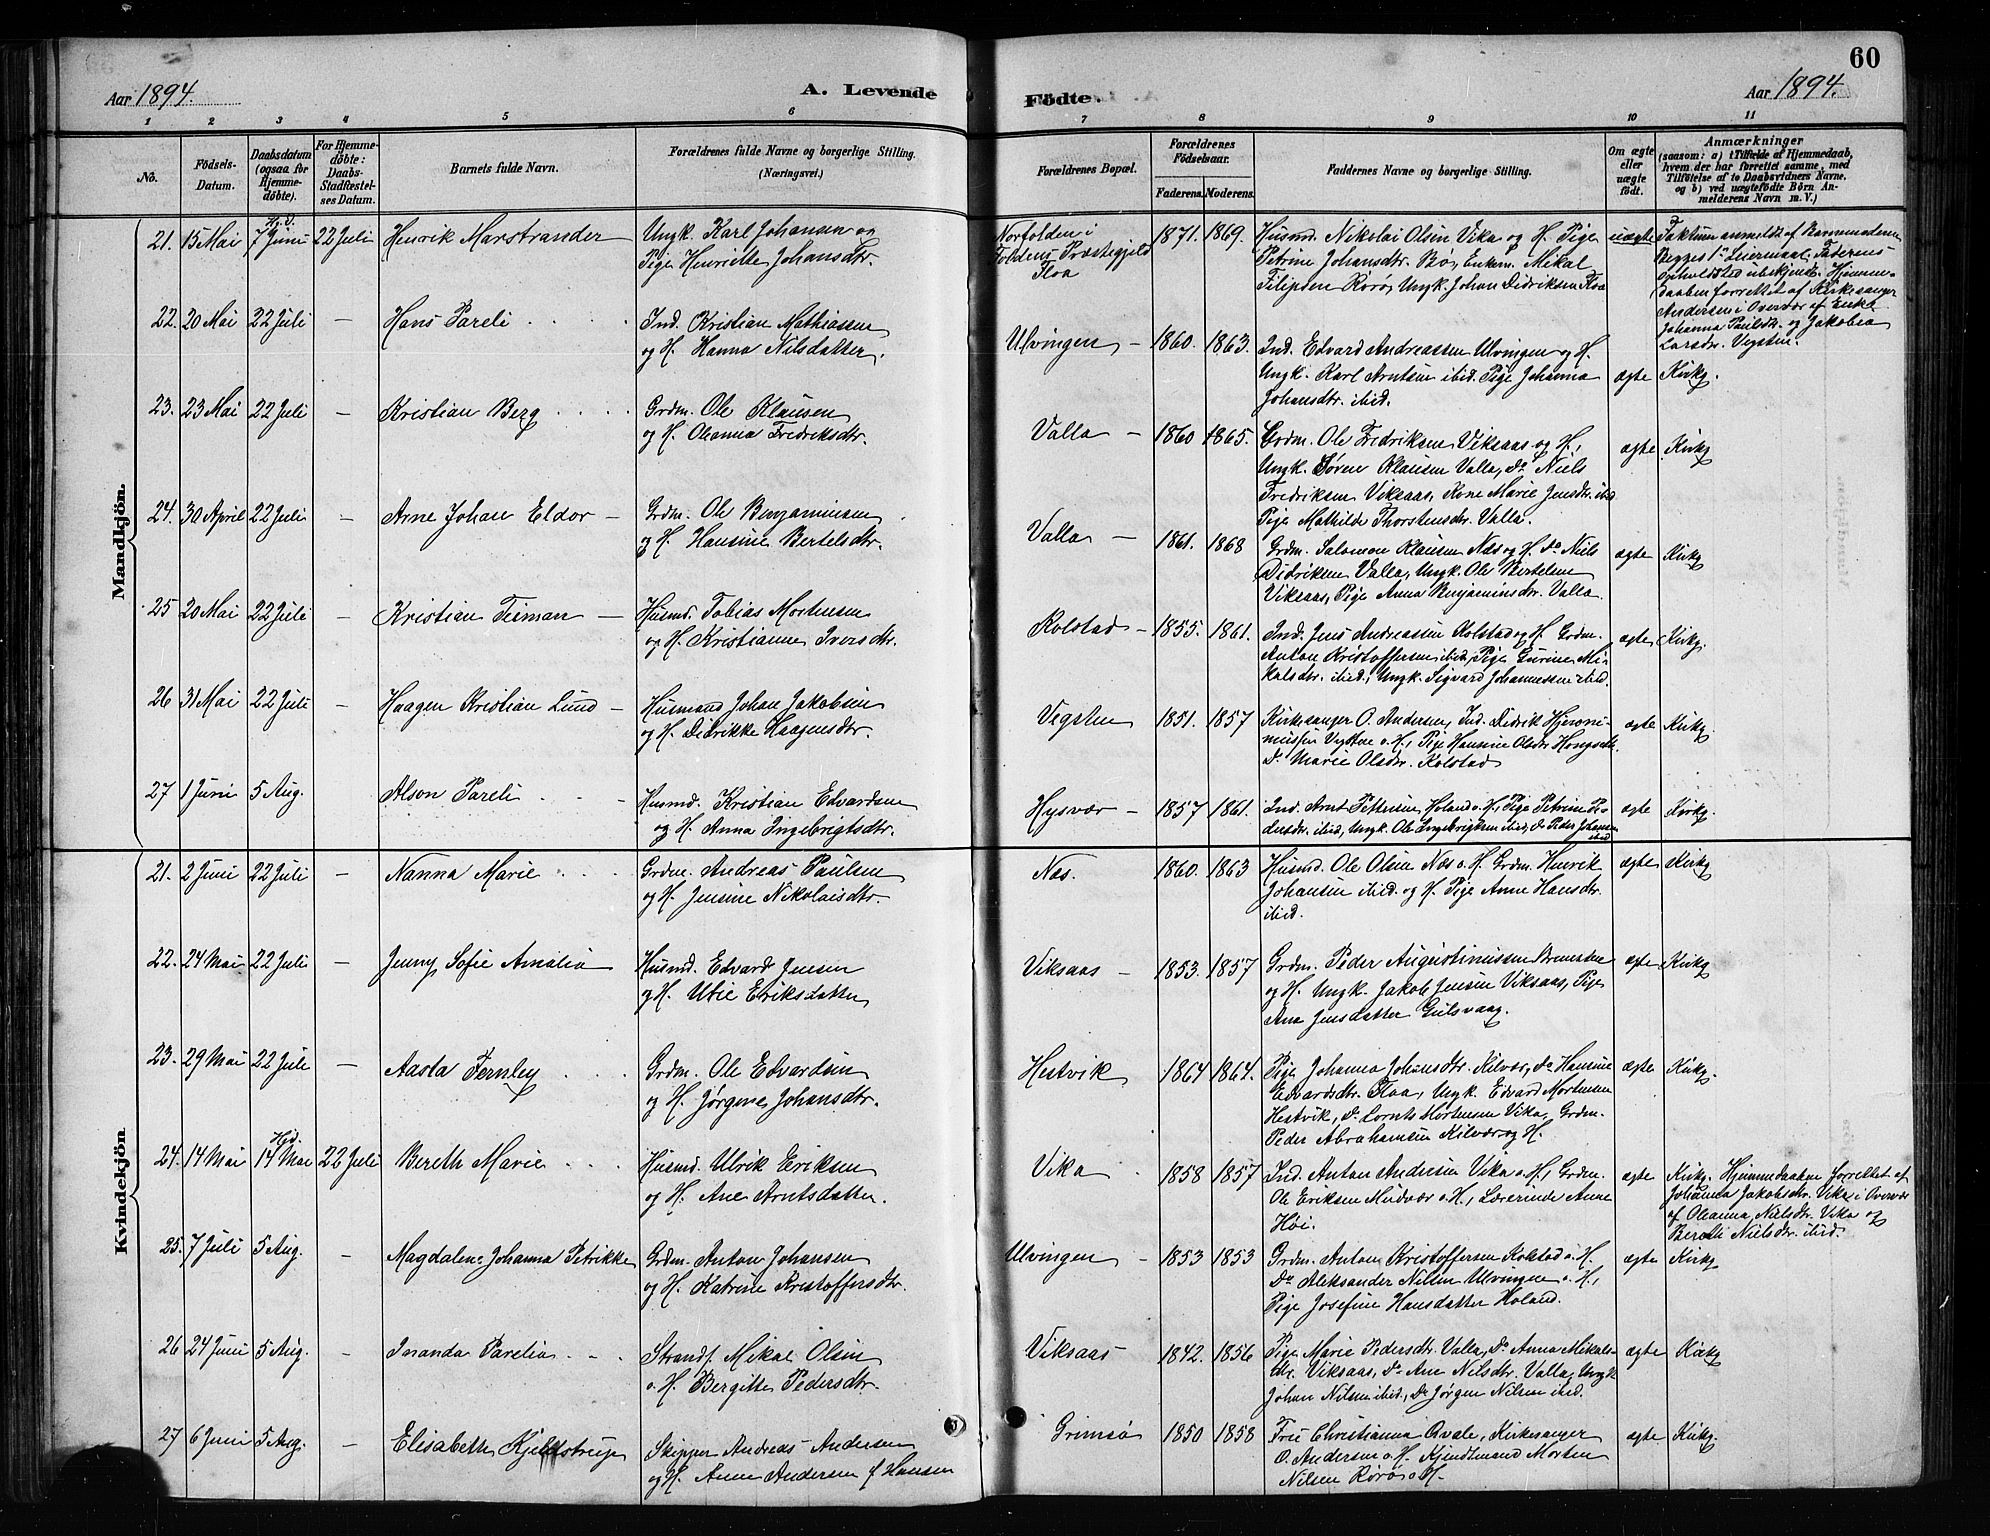 60
Aar 1894.
A. Levende Fødte.
Aar 1894.
1 2 3 4 5 6 7 8 9 10 11
No.
Fødsels-Datum.
Daabsdatum (ogsaa for Hjemmedøbte).
For Hjemmedøbte: Daabs-Stadfæstelses Datum.
Barnets fulde Navn.
Forældrenes fulde Navne og borgerlige Stilling. (Næringsvei.)
Forældrenes Bopæl.
Forældrenes Fødselsaar.
Faderens. Moderens.
Faddernes Navne og borgerlige Stilling.
Om ægte eller uægte født.
Anmærkninger
(saasom: a) i Tilfælde af Hjemmedaab, hvem der har forrettet samme, med Tilføielse af to Daabsvidners Navne, og b) ved uægtefødte Børn Anmelderens Navn m. V.)
Mandkjön.
21. 15 Mai Hjd. 7 Juni 22 Juli Henrik Marstrander
Ungk. Karl Johansen og
Pige Henriette Johansdtr.
Norfolden i
Foldens Præstegjeld
Floa
1871. 1869.
Husmd. Nikolai Olsen Vika og H. Pige
Petrine Johansdtr. Bø, Enkem. Mikal
Filipsen Rørø, Ungk. Johan Didriksen Floa
uægte
Faktum anmeldt af Barnemoderen
Begges 1ste Leiermaal. Faderens
Opholdsted ubekjendt. Hjemme-
daaben forrettet af Kirkesanger
Andersen i Overvær af Enke
Johanna Paulsdtr. og Jakobea
Larsdtr. Vegsten.
22. 20 Mai 22 Juli — Hans Pareli
Ind. Kristian Mathiassen
og H. Hanna Nilsdatter.
Ulvingen — 1860. 1863.
Ind. Edvard Andreassen Ulvingen og H.
Ungk. Karl Arntsen ibid. Pige Johanna
Johansdtr. ibid.
ægte Kirkg.
23. 23 Mai 22 Juli — Kristian Berg
Grdm. Ole Klausen
og H. Oleanna Fredriksdtr.
Valla — 1860 1865.
Grdm. Ole Fredriksen Viksaas og H.,
Ungk. Søren Klausen Valla, Do Niels
Fredriksen Viksaas, Kone Marie Jensdtr. ibid
Pige Mathilde Thorstensdtr. Valla.
ægte Kirkg
24. 30 April 22 Juli — Arne Johan Eldor —
Grdm. Ole Benjaminsen
og H. Hansine Bertelsdtr.
Valla — 1861. 1868
Grdm. Salomon Klausen Næs og H. Do Niels
Didriksen Valla, Ungk. Ole Bertelsen
Viksaas, Pige Anna Benjaminsdtr. Valla.
ægte Kirkg
25 20 Mai 22 Juli — Kristian Teiman —
Husmd. Tobias Mortensen
og H. Kristianne Iversdtr.
Kolstad — 1855. 1861.
Ind. Jens Andreassen Kolstad og H. Grdm.
Anton Kristoffersen ibid, Pige Gurine Mi-
kalsdtr. ibid., Ungk. Sigvard Johannessen ibid.
ægte Kirkg.
26 31 Mai 22 Juli — Haagen Kristian Lund —
Husmand Johan Jakobsen
og H. Didrikke Haagensdtr.
Vegsten 1851. 1857
Kirkesanger O. Andersen, Ind. Didrik Hjeroni-
mussen Vegsten o. H., Pige Hansine Olsdtr
Do Marie Olsdtr. Kolstad
ægte Kirkg.
27 1 Juni 5 Aug. Alson Pareli
Husmd. Kristian Edvardsen
og H. Anna Ingebrigtsdtr.
Hysvær — 1857 1861.
Ind. Arnt Pettersen Holand o. H., Pige Petrine Pe-
dersdtr. ibid, Ungk. Ole Ingebrigtsen ibid, Do Peder Johansen
ibid
ægte Kirkg.
Kvindekjön.
21. 2 Juni 22 Juli — Nanna Marie
Grdm. Andreas Paulsen
og H. Jensine Nikolaisdtr.
Næs. 1860. 1863
Husmd. Ole Olsen Næs o. H. Grdm. Henrik
Johansen ibid. og H. Pige Anne Hansdtr.
ibid.
ægte Kirkg
22. 24 Mai 22 Juli — Jenny Sofie Amalia
Husmd. Edvard Jensen
og H. Utie Eriksdatter
Viksaas — 1853. 1857
Grdm. Peder Augustinussen Bremsten
og H. Ungk. Jakob Jensen Viksaas, Pige
Ane Jensdatter Gulsvaag.
ægte Kirkg
23. 29 Mai 22 Juli — Aasta Fernley
Grdm. Ole Edvardsen
og H. Jørgine Johansdtr.
Hestvik 1864 1864.
Pige Johanna Johansdtr. Kilvær, Do Hansine
Edvardsdtr. Floa, Ungk. Edvard Mortensen
Hestvik, Do. Lornts Mortensen Vika, Grdm.
Peder Abrahamsen Kilvær og H.
ægte Kirkg.
24. 14 Mai Hjd. 14 Mai 22 Juli Bereth Marie
Husmd. Ulrik Eriksen
og H. Ane Arntsdatter.
Vika 1858 1857
Ind. Anton Andersen Vika o. H., Grdm.
Ole Eriksen Mudvær o. H., Lærerinde Anne
Høi.
ægte
Kirkg. Hjemmedaaben forrettet af
Johanna Jakobsdtr. Vika i Overvær
af Oleanna Nielsdtr. Vika og
Berethe Nielsdtr. ibid.
25. 7 Juli 5 Aug. — Magdalene Johanna Petrikke
Grdm. Anton Johansen
og H. Katrine Kristoffersdtr.
Ulvingen — 1853 1853
Grdm. Anton Kristoffersen Kolstad o. H.
Do Aleksander Nilsen Ulvingen o. H.,
Pige Josefine Hansdatter Holand.
ægte Kirkg
26 24 Juni 5 Aug. — Inanda Parelia
Strands. Mikal Olsen
o. H. Bergitte Pedersdtr.
Viksaas 1842. 1856
Pige Marie Pedersdtr. Valla, Do Anna Mikals-
dtr. Viksaas, Do Ane Nilsdtr. Valla, Ungk
Johan Nilsen ibid, Do Jørgen Nilsen ibid.
ægte Kirkg
27 6 Juni 5 Aug. — Elisabeth Kjeldstrup
Skipper Andreas Andersen
og H. Anne Andersen f. Hansen
Grimsø 1850 1858
Frue Christianna Qvale, Kirkesanger
O. Andersen o. H. Kjendtmand Morten
Nilsen Rørø o H.
ægte Kirkg.